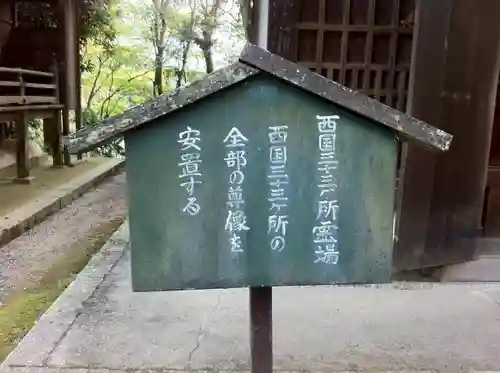 西国三十三ヶ所霊場
西国三十三ヶ所の
全部の尊像を
安置する